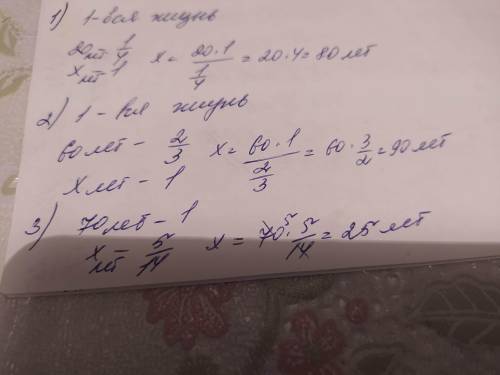 1) 1 - вся жизнь
20 лет - 1/4
x лет - 1 x = 20·1 / 1/4 = 20·4 = 80 лет
2) 1 - вся жизнь
60 лет - 2/3 x = 60·1 / 2/3 = 60·3/2 = 90 лет
x лет - 1
3) 70 лет - 1
x лет - 5/14 x = 70⁵·5/14 = 25 лет